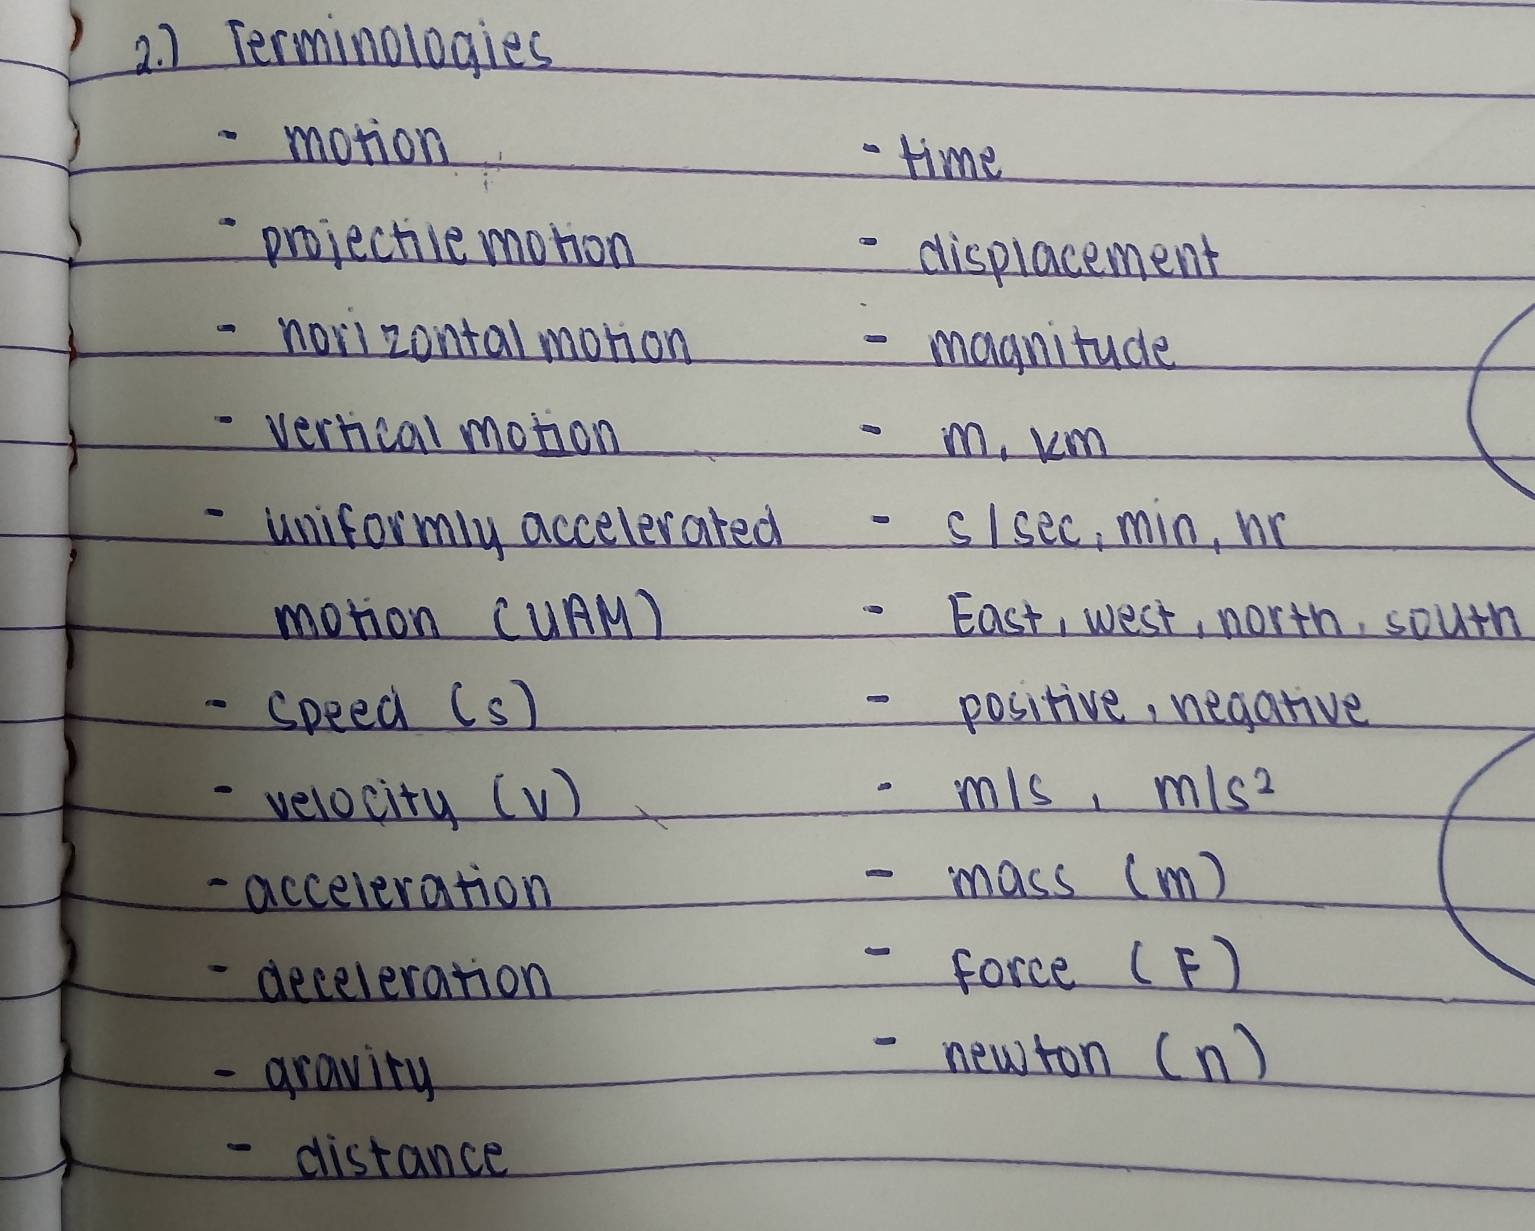 2.) Terminologies
- motion
- projectile motion
- horizontal motion
- vertical motion
- uniformly accelerated
motion (UAM)
- speed (s)
- velocity (v)
- acceleration
- deceleration
- gravity
- distance
- time
- displacement
- magnitude
- m, km
- s/sec, min, hr
- East, west, north, south
- positive, negative
- m/s, m/s²
- mass (m)
- Force (F)
- newton (n)